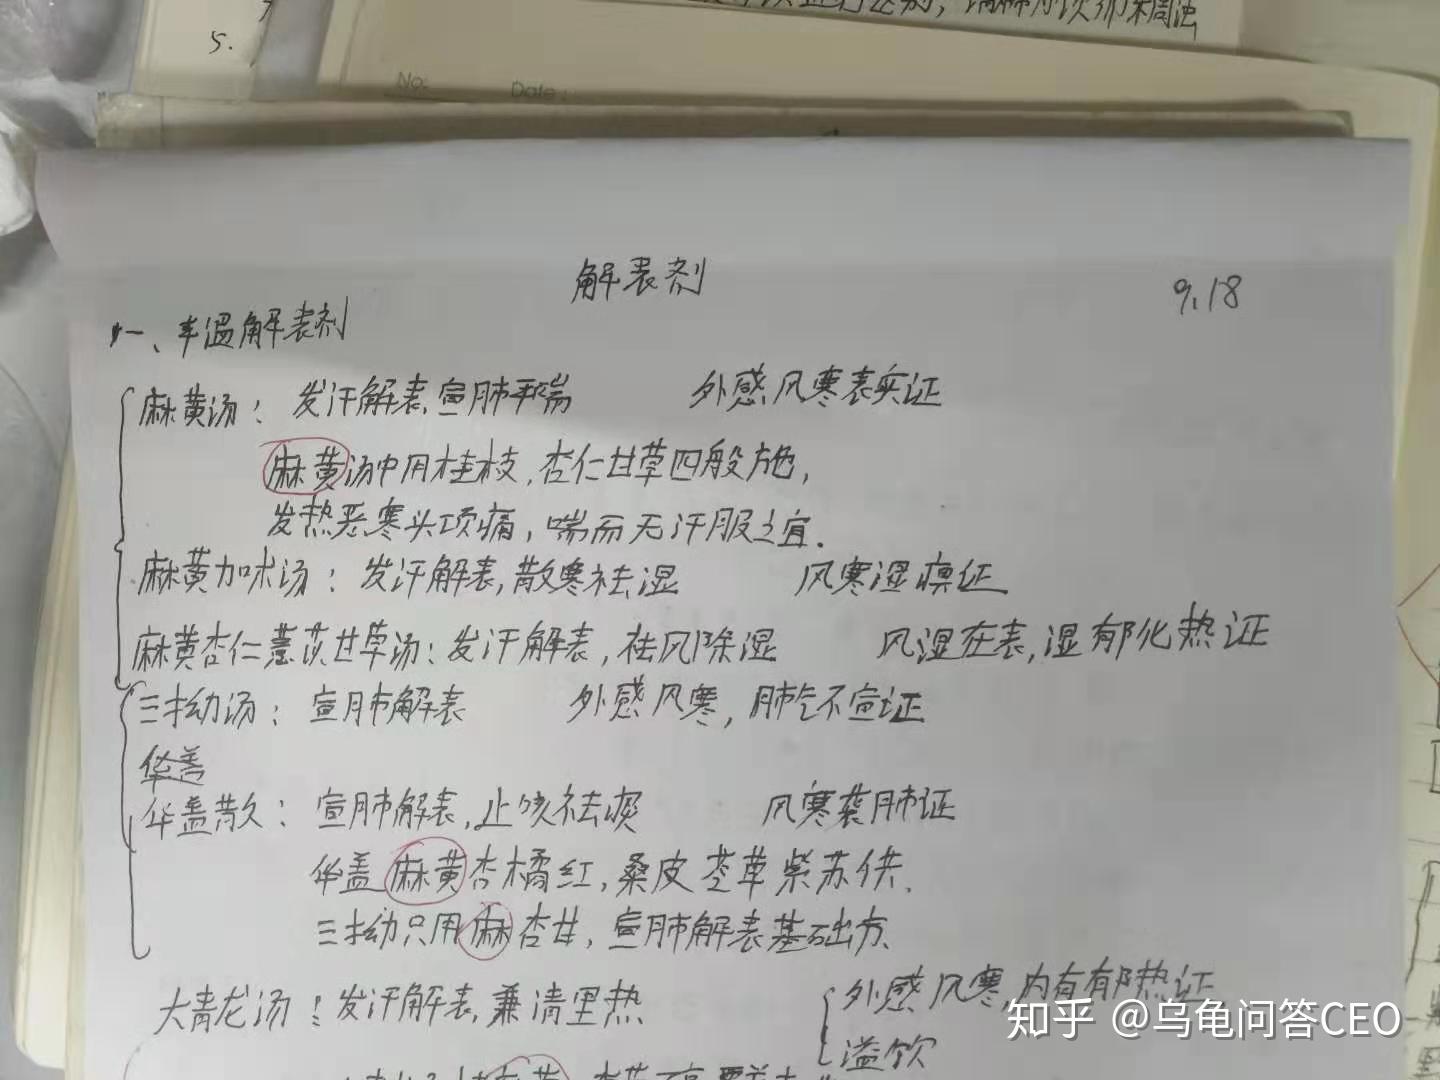 5.
No:
Date:
解表剂
9.18
一、辛温解表剂
麻黄汤：发汗解表,宣肺平喘 外感风寒表实证
麻黄汤中用桂枝,杏仁甘草四般施,
发热恶寒头项痛,喘而无汗服之宜.
麻黄加术汤：发汗解表,散寒祛湿 风寒湿痹证
麻黄杏仁薏苡甘草汤：发汗解表,祛风除湿 风湿在表,湿郁化热证
三拗汤：宣肺解表 外感风寒,肺气不宣证
华盖
华盖散：宣肺解表,止咳祛痰 风寒袭肺证
华盖麻黄杏橘红,桑皮苓草紫苏供.
三拗只用麻杏甘,宣肺解表基础方.
大青龙汤：发汗解表,兼清里热 外感风寒,内有郁热证
溢饮
知乎 @乌龟问答CEO